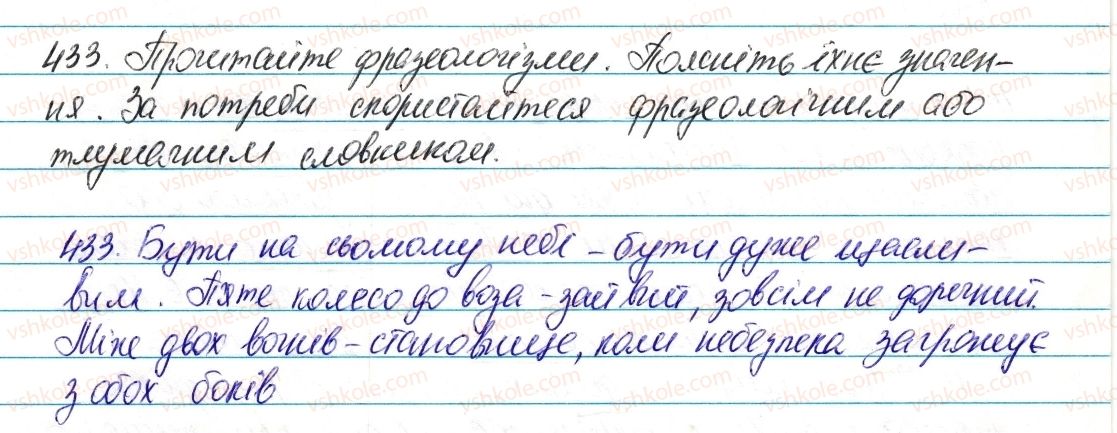 433. Прочитайте фразеологізми. Поясніть їхнє значен-
ня. За потреби скористайтеся фразеологічним або
тлумачним словником.
433. Бути на сьомому небі – бути дуже щасли-
вим. П'яте колесо до воза – зайвий, зовсім не доречний.
Між двох вогнів – становище, коли небезпека загрожує
з обох боків